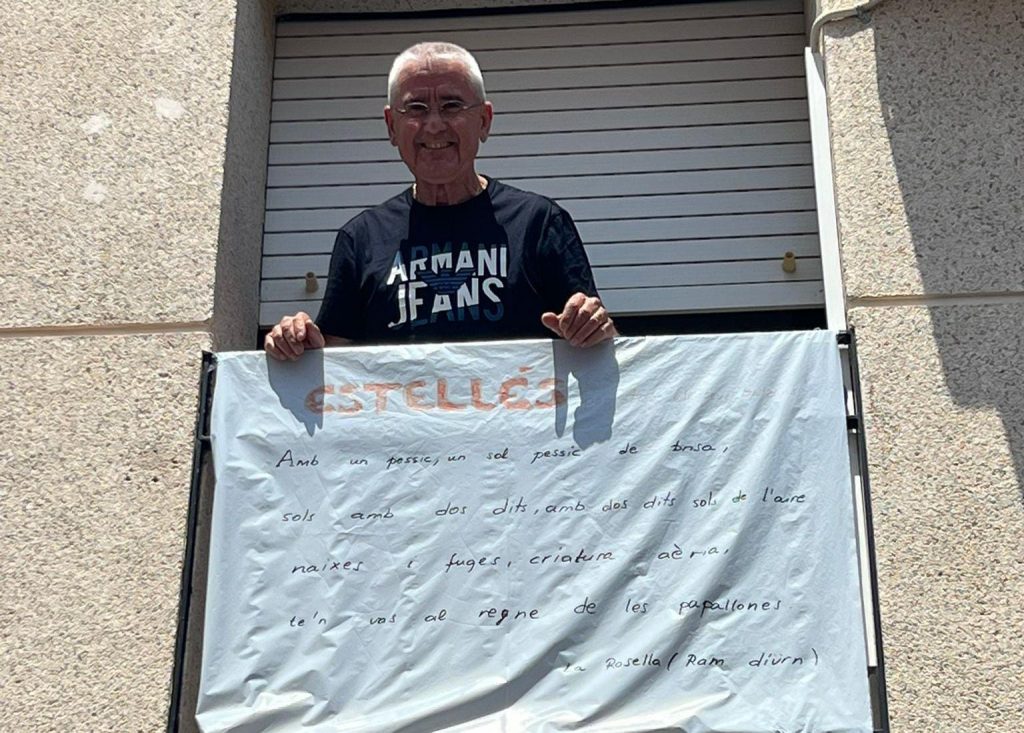 ARMANI
JEANS
ESTELLÉS
Amb un pessic, un sol pessic de brisa,
sols amb dos dits, amb dos dits sols de l'aire
naixes i fuges, criatura aèria,
te'n vas al regne de les papallones
La Rosella (Ram diürn)